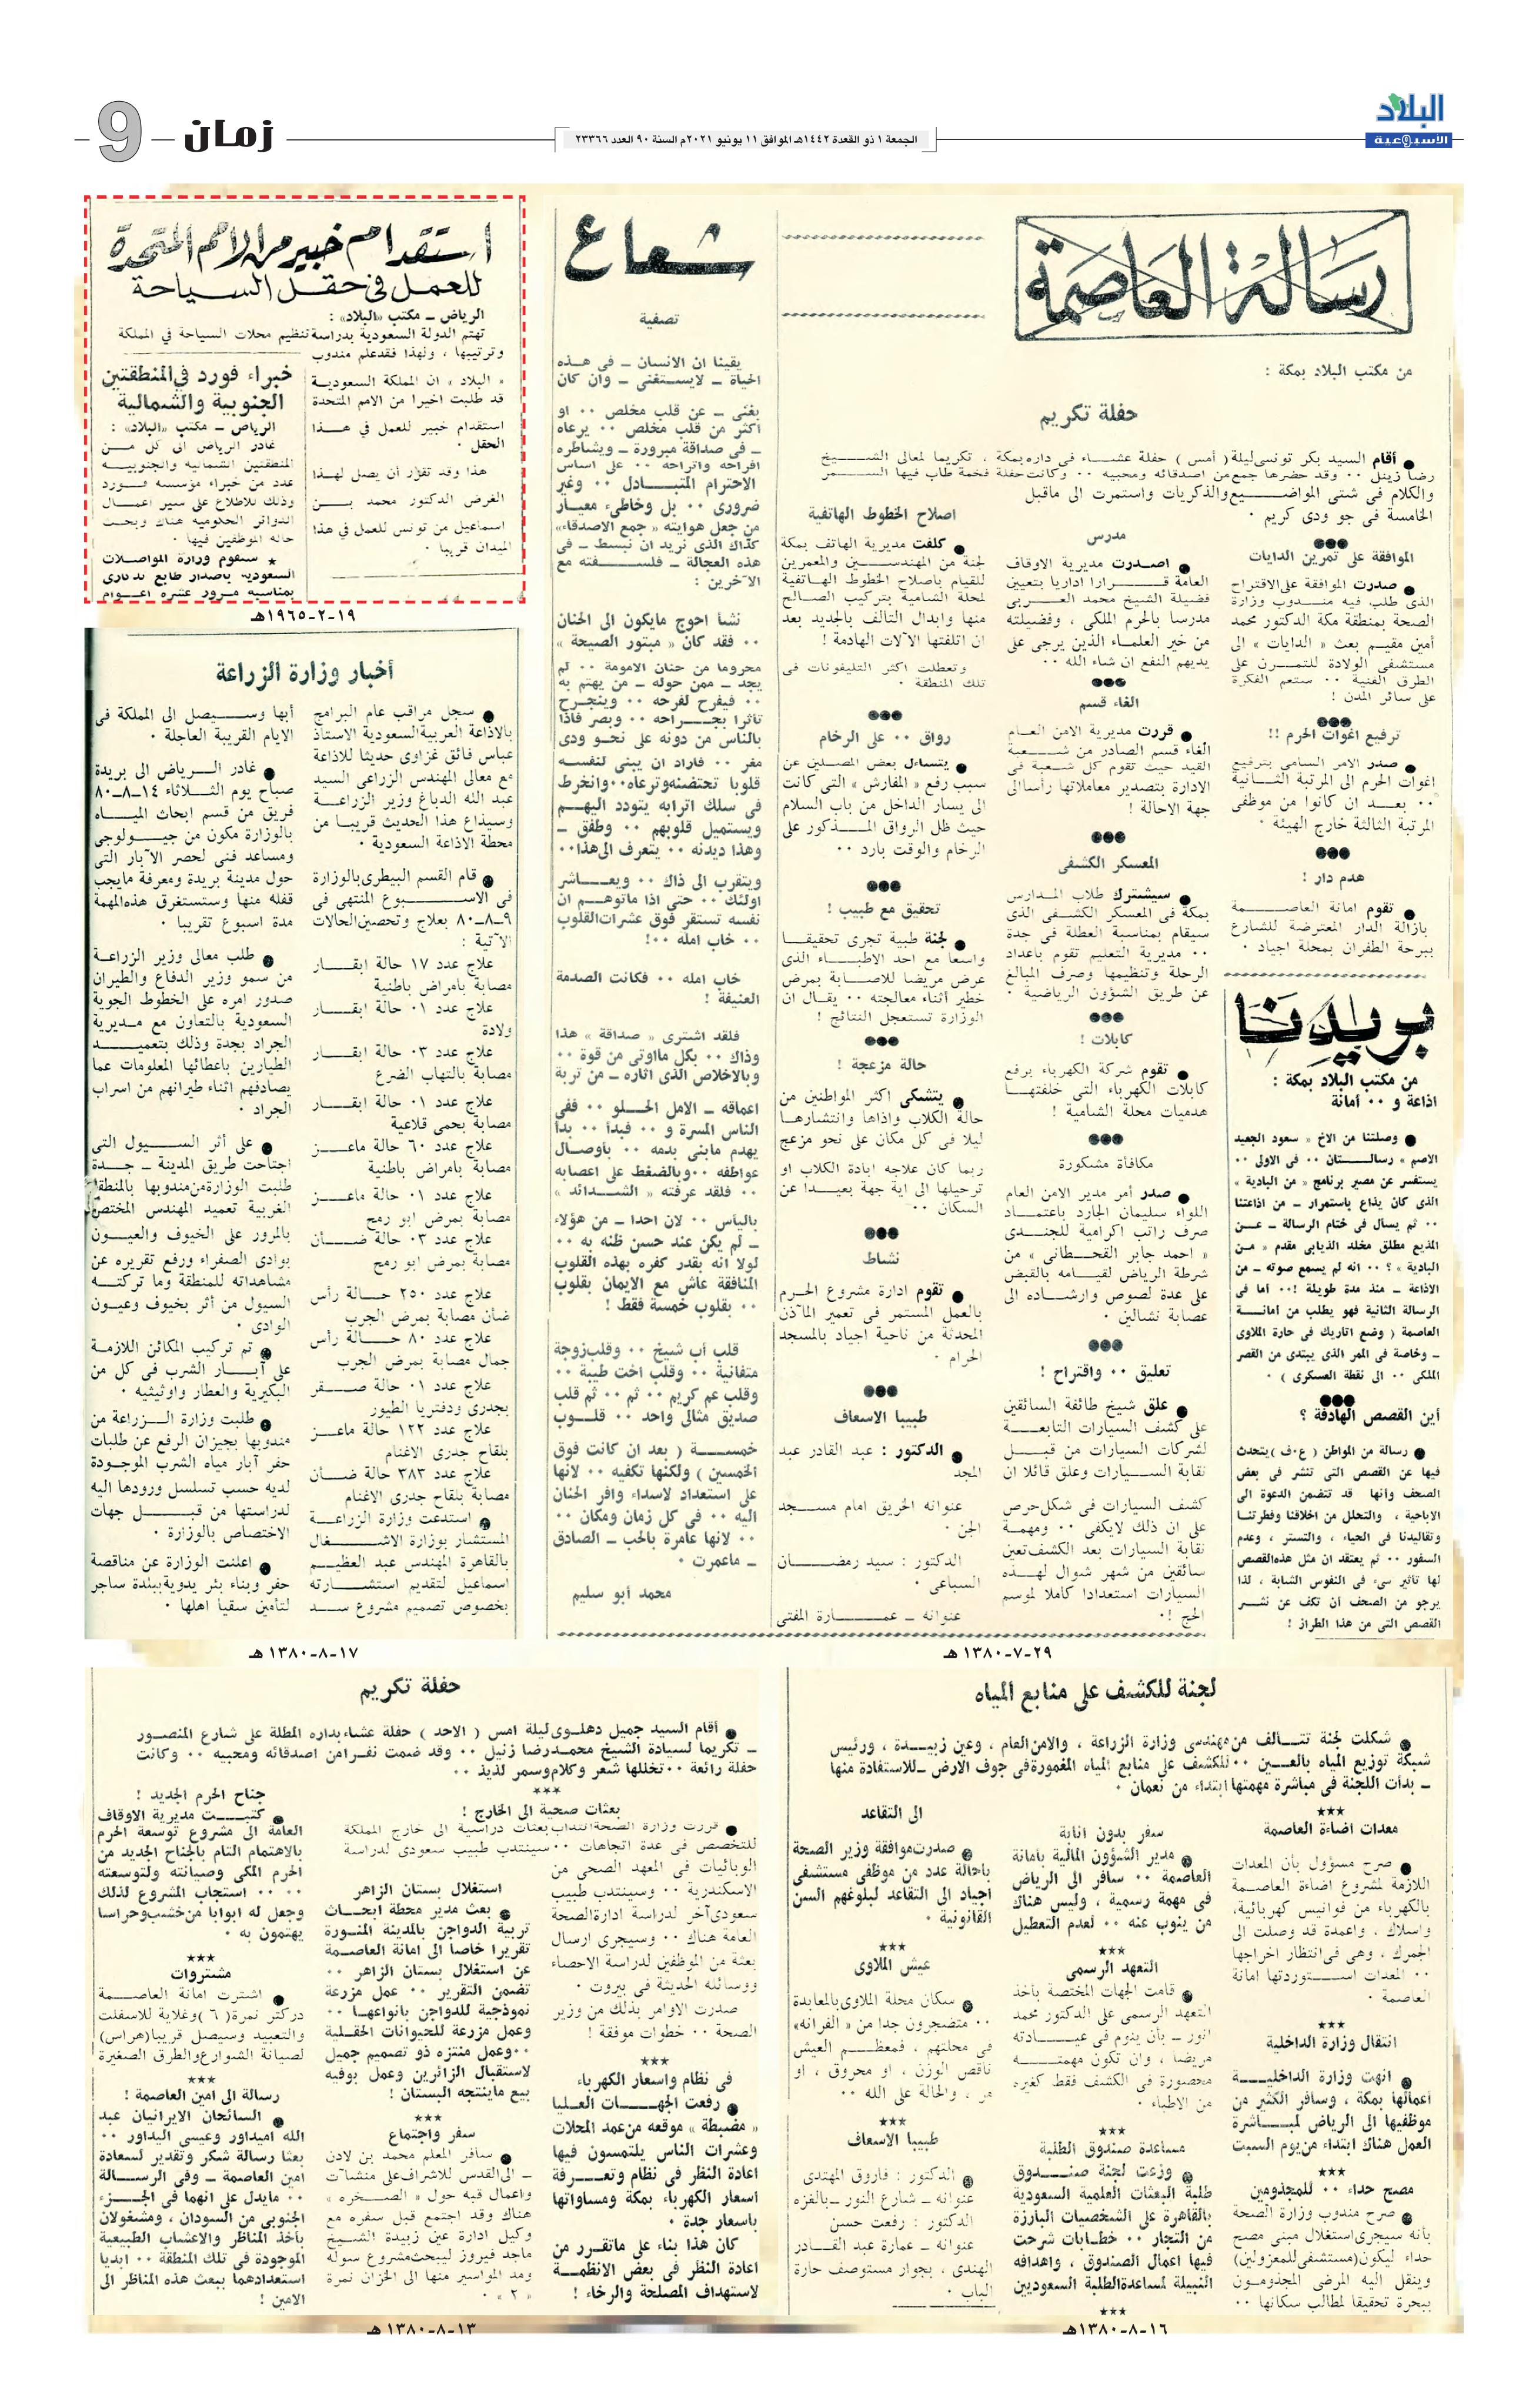 البلاد
الأسبوعية
الجمعة ١ ذو القعدة ١٤٤٢هـ الموافق ١١ يونيو ٢٠٢١م السنة ٩٠ العدد ٢٣٣٦٦
زمان
9
رسالة العاصمة
من مكتب البلاد بمكة :
حفلة تكريم
أقام السيد بكر تونسى ليلة ( أمس ) حفلة عشاء فى داره بمكة ، تكريما لمعالى الشيخ
رضا زينل ٠٠ وقد حضرها جمع من اصدقائه ومحبيه ٠٠ وكانت حفلة فخمة طاب فيها السمر
والكلام فى شتى المواضيع والذكريات واستمرت الى ماقبل
الخامسة فى جو ودى كريم ٠
الموافقة على تمرين الدايات
صدرت الموافقة على الاقتراح
الذى طلب فيه مندوب وزارة
الصحة بمنطقة مكة الدكتور محمد
أمين مقيم بعث « الدايات » الى
مستشفى الولادة للتمرن على
الطرق الفنية ٠٠ ستعم الفكرة
على سائر المدن !
ترفيع اغوات الحرم !!
صدر الامر السامى بترفيع
اغوات الحرم الى المرتبة الثانية
٠٠ بعد ان كانوا من موظفى
المرتبة الثالثة خارج الهيئة ٠
هدم دار !
تقوم امانة العاصمة
بازالة الدار المعترضة للشارع
ببرحة الطفران بمحلة اجياد ٠
مدرس
اصدرت مديرية الاوقاف
العامة قرارا اداريا بتعيين
فضيلة الشيخ محمد العربى
مدرسا بالحرم الملكى ، وفضيلته
من خير العلماء الذين يرجى على
يديهم النفع ان شاء الله ٠٠
الغاء قسم
قررت مديرية الامن العام
الغاء قسم الصادر من شعبة
القيد حيث تقوم كل شعبة فى
الادارة بتصدير معاملاتها رأسا الى
جهة الاحالة !
المعسكر الكشفى
سيشترك طلاب المدارس
بمكة فى المعسكر الكشفى الذى
سيقام بمناسبة العطلة فى جدة
٠٠ مديرية التعليم تقوم باعداد
الرحلة وتنظيمها وصرف المبالغ
عن طريق الشؤون الرياضية ٠
كابلات !
تقوم شركة الكهرباء برفع
كابلات الكهرباء التى خلفتها
هدميات محلة الشامية !
مكافأة مشكورة
صدر أمر مدير الامن العام
اللواء سليمان الجارد باعتماد
صرف راتب اكرامية للجندى
« احمد جابر القحطانى » من
شرطة الرياض لقيامه بالقبض
على عدة لصوص وارشاده الى
عصابة نشالين ٠
تعليق ٠٠ واقتراح !
علق شيخ طائفة السائقين
على كشف السيارات التابعة
لشركات السيارات من قبل
نقابة السيارات وعلق قائلا ان
كشف السيارات فى شكل حرص
على ان ذلك لايكفى ٠٠ ومهمة
نقابة السيارات بعد الكشف تعين
سائقين من شهر شوال لهذه
السيارات استعدادا كاملا لموسم
الحج !٠
اصلاح الخطوط الهاتفية
كلفت مديرية الهاتف بمكة
لجنة من المهندسين والمعمرين
للقيام باصلاح الخطوط الهاتفية
لمحلة الشامية بتركيب الصالح
منها وابدال التالف بالجديد بعد
ان اتلفتها الآلات الهادمة !
وتعطلت اكثر التليفونات فى
تلك المنطقة ٠
رواق ٠٠ على الرخام
يتساءل بعض المصلين عن
سبب رفع « المفارش » التى كانت
الى يسار الداخل من باب السلام
حيث ظل الرواق المذكور على
الرخام والوقت بارد ٠٠
تحقيق مع طبيب !
لجنة طبية تجرى تحقيقا
واسعا مع احد الاطباء الذى
عرض مريضا للاصابة بمرض
خطير أثناء معالجته ٠٠ يقال ان
الوزارة تستعجل النتائج !
حالة مزعجة !
يتشكى اكثر المواطنين من
حالة الكلاب واذاها وانتشارها
ليلا فى كل مكان على نحو مزعج
ربما كان علاجه ابادة الكلاب او
ترحيلها الى اية جهة بعيدا عن
السكان ٠٠
نشاط
تقوم ادارة مشروع الحرم
بالعمل المستمر فى تعمير المآذن
المحدثة من ناحية اجياد بالمسجد
الحرام ٠
طبيبا الاسعاف
الدكتور : عبد القادر عبد
المجد
عنوانه الحريق امام مسجد
الجن ٠
الدكتور : سيد رمضان
السباعى ٠
عنوانه – عمارة المفتى
بريدنا
من مكتب البلاد بمكة :
اذاعة و ٠٠ أمانة
وصلتنا من الاخ « سعود الجعيد
الاصم » رسالتان ٠٠ فى الاولى ٠٠
يستفسر عن مصير برنامج « من البادية »
الذى كان يذاع باستمرار – من اذاعتنا
٠٠ ثم يسأل فى ختام الرسالة – عن
المذيع مطلق مخلد الذيابى مقدم « من
البادية » ؟ ٠٠ انه لم يسمع صوته – من
الاذاعة – منذ مدة طويلة !٠٠ اما فى
الرسالة الثانية فهو يطلب من امانة
العاصمة ( وضع اتاريك فى حارة الملاوى
– وخاصة فى الممر الذى يبتدى من القصر
الملكى ٠٠ الى نقطة العسكرى ) ٠
أين القصص الهادفة ؟
رسالة من المواطن ( ع.ف ) يتحدث
فيها عن القصص التى تنشر فى بعض
الصحف وأنها قد تتضمن الدعوة الى
الاباحية ، والتحلل من اخلاقنا وفطرتنا
وتقاليدنا فى الحياء ، والتستر ، وعدم
السفور ٠٠ ثم يعتقد ان مثل هذه القصص
لها تأثير سىء فى النفوس الشابة ، لذا
يرجو من الصحف أن تكف عن نشر
القصص التى من هذا الطراز !
٢٩-٧-١٣٨٠ هـ
شعاع
تصفية
يقينا ان الانسان – فى هذه
الحياة – لايستغنى – وان كان
بغنى – عن قلب مخلص ٠٠ او
اكثر من قلب مخلص ٠٠ يرعاه
– فى صداقة مبرورة – ويشاطره
افراحه واتراحه ٠٠ على اساس
الاحترام المتبادل ٠٠ وغير
ضرورى ٠٠ بل وخاطىء معيار
من جعل هوايته « جمع الاصدقاء»
كذاك الذى نريد ان نبسط – فى
هذه العجالة – فلسفته مع
الآخرين :
نشأ احوج مايكون الى الحنان
٠٠ فقد كان « مبتور الصيحة »
محروما من حنان الامومة ٠٠ لم
يجد – ممن حوله – من يهتم به
٠٠ فيفرح لفرحه ٠٠ وينجرح
تأثرا بجراحه ٠٠ وبصر فاذا
بالناس من دونه على نحو ودى
مغر ٠٠ فاراد ان يبنى لنفسه
قلوبا تحتضنه وترعاه٠٠وانخرط
فى سلك اترابه يتودد اليهم
ويستميل قلوبهم ٠٠ وطفق –
وهذا ديدنه ٠٠ يتعرف الى هذا٠٠
ويتقرب الى ذاك ٠٠ ويعاشر
اولئك ٠٠ حتى اذا ماتوهم ان
نفسه تستقر فوق عشرات القلوب
٠٠ خاب امله ٠٠!
خاب امله ٠٠ فكانت الصدمة
العنيفة !
فلقد اشترى « صداقة » هذا
وذاك ٠٠ بكل مااوتى من قوة ٠٠
وبالاخلاص الذى اثاره – من تربة
اعماقه – الامل الحلو ٠٠ ففى
الناس المسرة و ٠٠ فبدأ ٠٠ بدأ
يهدم مابنى بدمه ٠٠ بأوصال
عواطفه ٠٠ وبالضغط على اعصابه
٠٠ فلقد عرفته « الشدائد »
باليأس ٠٠ لان احدا – من هؤلاء
– لم يكن عند حسن ظنه به ٠٠
لولا انه بقدر كفره بهذه القلوب
المنافقة عاش مع الايمان بقلوب
٠٠ بقلوب خمسة فقط !
قلب أب شيخ ٠٠ وقلب زوجة
متفانية ٠٠ وقلب اخت طيبة ٠٠
وقلب عم كريم ٠٠ ثم ٠٠ ثم قلب
صديق مثالى واحد ٠٠ قلوب
خمسة ( بعد ان كانت فوق
الخمسين ) ولكنها تكفيه ٠٠ لانها
على استعداد لاسداء وافر الحنان
اليه ٠٠ فى كل زمان ومكان ٠٠
٠٠ لانها عامرة بالحب – الصادق
– ماعمرت ٠
محمد أبو سليم
استقدام خبير من الامم المتحدة
للعمل فى حقل السياحة
الرياض – مكتب «البلاد» :
تهتم الدولة السعودية بدراسة تنظيم محلات السياحة في المملكة
وترتيبها ، ولهذا فقد علم مندوب
« البلاد » ان المملكة السعودية
قد طلبت اخيرا من الامم المتحدة
استقدام خبير للعمل في هذا
الحقل ٠
هذا وقد تقرر أن يصل لهذا
الغرض الدكتور محمد بن
اسماعيل من تونس للعمل في هذا
الميدان قريبا ٠
خبراء فورد في المنطقتين
الجنوبية والشمالية
الرياض – مكتب «البلاد» :
غادر الرياض الى كل من
المنطقتين الشمالية والجنوبية
عدد من خبراء مؤسسة فورد
وذلك للاطلاع على سير اعمال
الدوائر الحكومية هناك وبحث
حالة الموظفين فيها ٠
★ ستقوم وزارة المواصلات
السعودية باصدار طابع تذكارى
بمناسبة مرور عشرة اعوام
١٩-٢-١٩٦٥هـ
أخبار وزارة الزراعة
سجل مراقب عام البرامج
بالاذاعة العربية السعودية الاستاذ
عباس فائق غزاوى حديثا للاذاعة
مع معالى المهندس الزراعى السيد
عبد الله الدباغ وزير الزراعة
وسيذاع هذا الحديث قريبا من
محطة الاذاعة السعودية ٠
قام القسم البيطرى بالوزارة
فى الاسبوع المنتهى فى
٩-٨-٨٠ بعلاج وتحصين الحالات
الآتية :
علاج عدد ١٧ حالة ابقار
مصابة بأمراض باطنية
علاج عدد ٠١ حالة ابقار
ولادة
علاج عدد ٠٣ حالة ابقار
مصابة بالتهاب الضرع
علاج عدد ٠١ حالة ابقار
مصابة بحمى قلاعية
علاج عدد ٦٠ حالة ماعز
مصابة بأمراض باطنية
علاج عدد ٠١ حالة ماعز
مصابة بمرض ابو رمح
علاج عدد ٠٣ حالة ضان
مصابة بمرض ابو رمح
علاج عدد ٢٥٠ حالة رأس
ضان مصابة بمرض الجرب
علاج عدد ٨٠ حالة رأس
جمال مصابة بمرض الجرب
علاج عدد ٠١ حالة صقر
بجدرى ودفتريا الطيور
علاج عدد ١٢٢ حالة ماعز
بلقاح جدرى الاغنام
علاج عدد ٣٨٣ حالة ضان
مصابة بلقاح جدرى الاغنام
استدعت وزارة الزراعة
المستشار بوزارة الاشغال
بالقاهرة المهندس عبد العظيم
اسماعيل لتقديم استشارته
بخصوص تصميم مشروع سد
أبها وسيصل الى المملكة فى
الايام القريبة العاجلة ٠
غادر الرياض الى بريدة
صباح يوم الثلاثاء ١٤-٨-٨٠
فريق من قسم ابحاث المياه
بالوزارة مكون من جيولوجى
ومساعد فنى لحصر الآبار التى
حول مدينة بريدة ومعرفة مايجب
قفله منها وستستغرق هذه المهمة
مدة اسبوع تقريبا ٠
طلب معالى وزير الزراعة
من سمو وزير الدفاع والطيران
صدور امره على الخطوط الجوية
السعودية بالتعاون مع مديرية
الجراد بجدة وذلك بتعميد
الطيارين باعطائها المعلومات عما
يصادفهم اثناء طيرانهم من اسراب
الجراد ٠
على أثر السيول التى
اجتاحت طريق المدينة – جدة
طلبت الوزارة من مندوبها بالمنطقة
الغربية تعميد المهندس المختص
بالمرور على الخيوف والعيون
بوادى الصفراء ورفع تقريره عن
مشاهداته للمنطقة وما تركته
السيول من أثر بخيوف وعيون
الوادى ٠
تم تركيب المكائن اللازمة
على آبار الشرب فى كل من
البكيرية والعطار واوثيثيه ٠
طلبت وزارة الزراعة من
مندوبها بجيزان الرفع عن طلبات
حفر آبار مياه الشرب الموجودة
لديه حسب تسلسل ورودها اليه
لدراستها من قبل جهات
الاختصاص بالوزارة ٠
اعلنت الوزارة عن مناقصة
حفر وبناء بئر يدوية ببلدة ساجر
لتأمين سقيا اهلها ٠
١٧-٨-١٣٨٠ هـ
لجنة للكشف على منابع المياه
شكلت لجنة تتألف من مهندسى وزارة الزراعة ، والامن العام ، وعين زبيدة ، ورئيس
شبكة توزيع المياه بالعين ٠٠ للكشف على منابع المياه المغمورة فى جوف الارض – للاستفادة منها
– بدأت اللجنة فى مباشرة مهمتها ابتداء من نعمان ٠
معدات اضاءة العاصمة
صرح مسؤول بأن المعدات
اللازمة لمشروع اضاءة العاصمة
بالكهرباء من فوانيس كهربائية،
واسلاك ، واعمدة قد وصلت الى
الجمرك ، وهى فى انتظار اخراجها
٠٠ المعدات استوردتها امانة
العاصمة ٠
انتقال وزارة الداخلية
انهت وزارة الداخلية
اعمالها بمكة ، وسافر الكثير من
موظفيها الى الرياض لمباشرة
العمل هناك ابتداء من يوم السبت
مصح حداء ٠٠ للمجذومين
صرح مندوب وزارة الصحة
بأنه سيجرى استغلال مبنى مصح
حداء ليكون (مستشفى للمعزولين)
وينقل اليه المرضى المجذومون
ببحرة تحقيقا لمطالب سكانها ٠٠
سفر بدون انابة
مدير الشؤون المالية بامانة
العاصمة ٠٠ سافر الى الرياض
فى مهمة رسمية ، وليس هناك
من ينوب عنه ٠٠ لعدم التعطيل
التعهد الرسمى
قامت الجهات المختصة بأخذ
التعهد الرسمى على الدكتور محمد
انور – بأن ينوم فى عيادته
مريضا ، وان تكون مهمته
محصورة فى الكشف فقط كغيره
من الاطباء ٠
مساعدة صندوق الطلبة
وزعت لجنة صندوق
طلبة البعثات العلمية السعودية
بالقاهرة على الشخصيات البارزة
من التجار ٠٠ خطابات شرحت
فيها اعمال الصندوق ، واهدافه
النبيلة لمساعدة الطلبة السعوديين
الى التقاعد
صدرت موافقة وزير الصحة
باحالة عدد من موظفى مستشفى
اجياد الى التقاعد لبلوغهم السن
القانونية ٠
عيش الملاوى
سكان محلة الملاوى بالمعابدة
٠٠ متضجرون جدا من « الفرانه»
فى محلتهم ، فمعظم العيش
ناقص الوزن ، او محروق ، او
مر ، والحالة على الله ٠٠
طبيبا الاسعاف
الدكتور : فاروق المهتدى
عنوانه – شارع النور – بالغزه
الدكتور : رفعت حسن
عنوانه – عمارة عبد القادر
الهندى ، بجوار مستوصف حارة
الباب ٠
١٦-٨-١٣٨٠هـ
حفلة تكريم
أقام السيد جميل دهلوى ليلة امس ( الاحد ) حفلة عشاء بداره المطلة على شارع المنصور
– تكريما لسيادة الشيخ محمد رضا زنيل ٠٠ وقد ضمت نفرا من اصدقائه ومحبيه ٠٠ وكانت
حفلة رائعة ٠٠ تخللها شعر وكلام وسمر لذيذ ٠٠
بعثات صحية الى الخارج !
قررت وزارة الصحة انتداب بعثات دراسية الى خارج المملكة
للتخصص فى عدة اتجاهات ٠٠ سينتدب طبيب سعودى لدراسة
الوبائيات فى المعهد الصحى من
الاسكندرية ٠٠ وسينتدب طبيب
سعودى آخر لدراسة ادارة الصحة
العامة هناك ٠٠ وسيجرى ارسال
بعثة من الموظفين لدراسة الاحصاء
ووسائله الحديثة فى بيروت ٠
صدرت الاوامر بذلك من وزير
الصحة ٠٠ خطوات موفقة !
فى نظام واسعار الكهرباء
رفعت الجهات العليا
« مضبطة » موقعه من عمد المحلات
وعشرات الناس يلتمسون فيها
اعادة النظر فى نظام وتعرفة
اسعار الكهرباء بمكة ومساواتها
باسعار جدة ٠
كان هذا بناء على ماتقرر من
اعادة النظر فى بعض الانظمة
لاستهداف المصلحة والرخاء !
استغلال بستان الزاهر
بعث مدير محطة ابحاث
تربية الدواجن بالمدينة المنورة
تقريرا خاصا الى امانة العاصمة
عن استغلال بستان الزاهر ٠٠
تضمن التقرير ٠٠ عمل مزرعة
نموذجية للدواجن بانواعها ٠٠
وعمل مزرعة للحيوانات الحقلية
٠٠ وعمل منتزه ذو تصميم جميل
لاستقبال الزائرين وعمل بوفيه
بيع ماينتجه البستان !
سفر واجتماع
سافر المعلم محمد بن لادن
– الى القدس للاشراف على منشآت
واعمال قبه حول « الصخره »
هناك وقد اجتمع قبل سفره مع
وكيل ادارة عين زبيدة الشيخ
ماجد فيروز ليبحث مشروع سوله
ومد المواسير منها الى الخزان نمرة
« ٢ »
جناح الحرم الجديد !
كتبت مديرية الاوقاف
العامة الى مشروع توسعة الحرم
بالاهتمام التام بالجناح الجديد من
الحرم المكى وصيانته ولتوسعته
٠٠ ٠٠ استجاب المشروع لذلك
وجعل له ابوابا من خشب وحراسا
يهتمون به ٠
مشتروات
اشترت امانة العاصمة
دركتر نمرة ( ٦ ) وغلاية للاسفلت
والتعبيد وسيصل قريبا (هراس)
لصيانة الشوارع والطرق الصغيرة
رسالة الى امين العاصمة !
السائحان الايرانيان عبد
الله اميداور وعيسى اليداور ٠٠
بعثا رسالة شكر وتقدير لسعادة
امين العاصمة – وفى الرسالة
٠٠ مايدل على انهما فى الجزء
الجنوبى من السودان ، ومشغولان
بأخذ المناظر والاعشاب الطبيعية
الموجودة فى تلك المنطقة ٠٠ ابديا
استعدادهما ببعث هذه المناظر الى
الامين !
١٣-٨-١٣٨٠ هـ